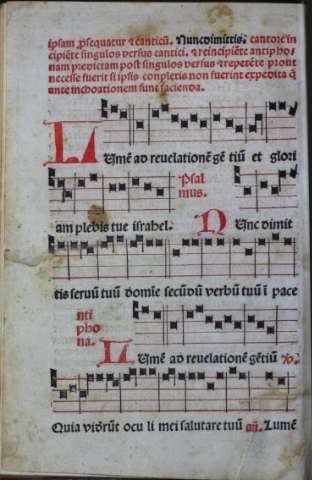 ipsam ꝓsequatur ⁊ cãticũ. Nuncdimittis. cantore in
cipiẽte singulos versus cantici. ⁊ reincipiẽte antipho
nam predictam post singulos versus ⁊ repetẽte prout
necesse fuerit si ipsis conpletis non fuerint expedita q̃
ante inchoationem sunt facienda.
Lumẽ ad reuelationẽ gẽ tiũ et glori
Psal
mus.
am plebis tue israhel. Nunc dimit
tis seruũ tuũ domĩe secũdũ verbũ tuũ ĩ pace
nti
pho
na. Lumẽ ad reuelationẽ gẽtiũ
Quia vidẽrũt ocu li mei salutare tuũ añ. Lumẽ